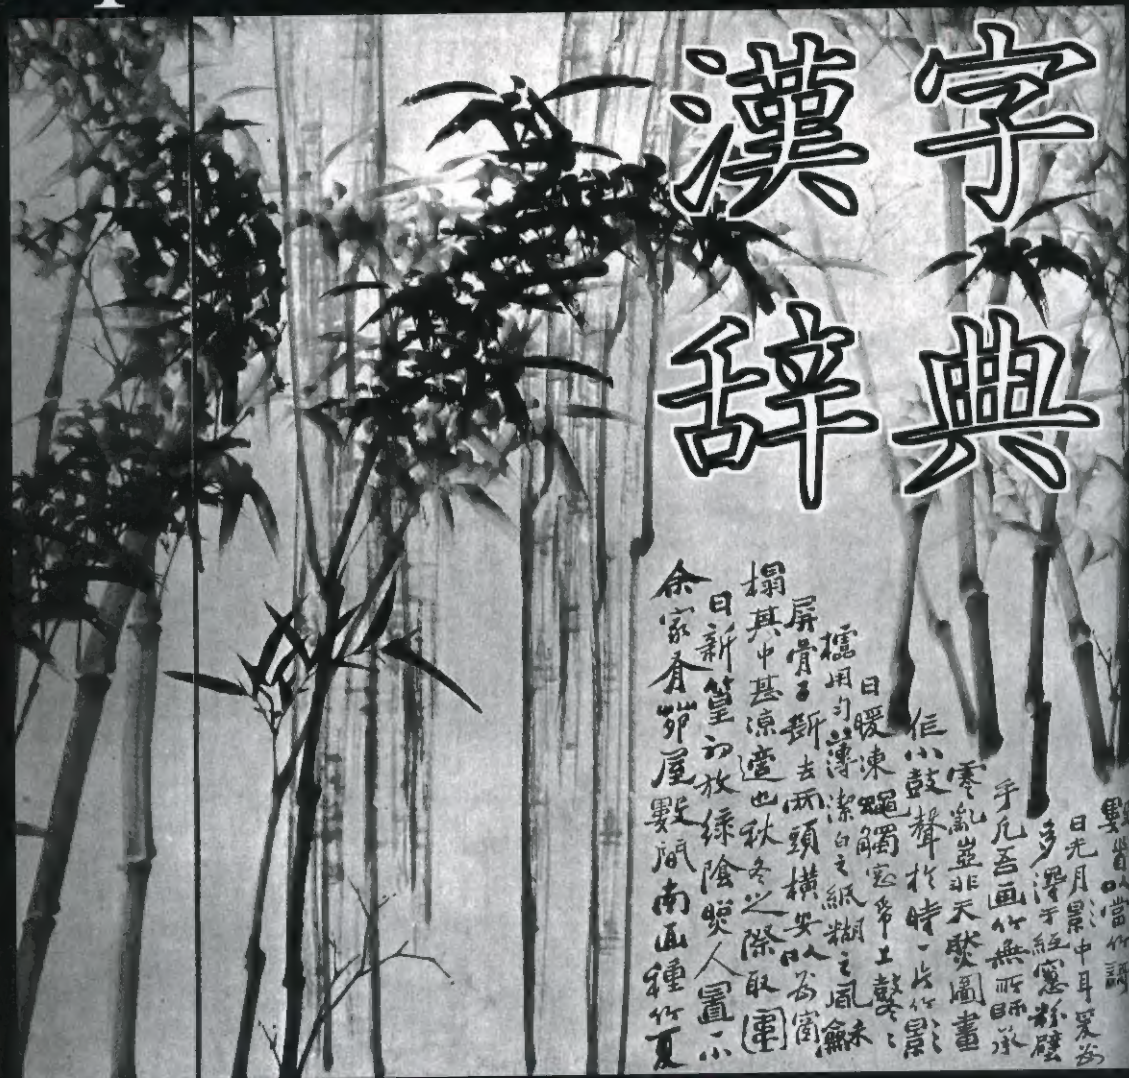 漢字
辞典
余家有茆屋數間南面種竹夏
日新篁初放綠陰照人置一小
榻其中甚涼適也秋冬之際取圍
屏骨子斷去兩頭橫安以為窗
櫺用勻薄潔白之紙糊之風龢
日暖凍蠅觸窓帋上鼕〻
作小鼓聲於時一片竹影
零亂豈非天然圖畫
乎凡吾画竹無所師承
多淂于紙窗粉壁
日光月影中耳爰為
數首以當竹譜